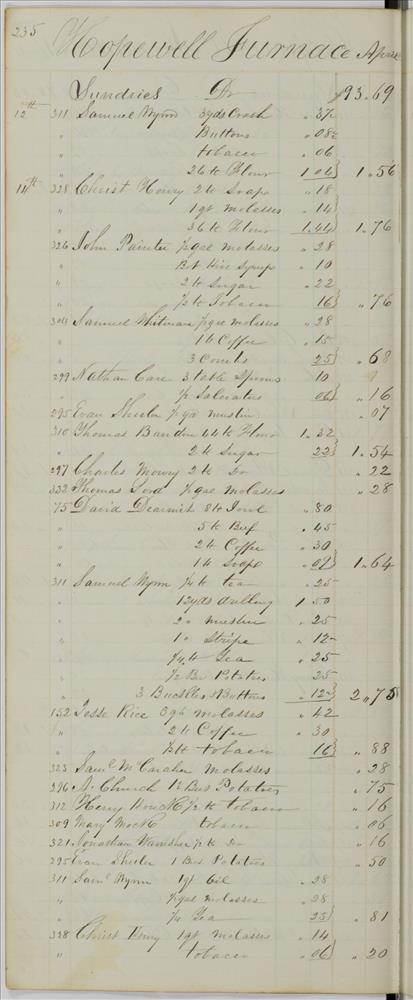 235
Hopewell Furnace April
Sundries Dr 93.69
12th 311 Samuel Wynn 3 yds Crash .37½
" Buttons .08½
" tobacco .06
" 26 ℔ Flour 1 04 1.56
14th 328 Christ Henry 2 ℔ Soape .18
" 1 qt molasses .14
" 36 ℔ Flour 1.44 1.76
326 John Painter ½ gal molasses .28
" Bot Hive Syrup .10
" 2 ℔ Sugar .22
" ½ ℔ Tobacco 16 .76
304 Samuel Whitman ½ gal molasses .28
" 1 ℔ Coffee .15
" 3 Combs 25 .68
299 Nathan Care 3 table Spoons 10
" ½ Salerates 06 .16
295 Evan Sheeler ½ yd muslin .07
310 Thomas Bander 44 ℔ Flour 1.32
" 2 ℔ Sugar 22 1.54
297 Charles Mowry 2 ℔ Do .22
332 Thomas Lord ½ gal Molasses .28
75 David Dearmit 8 ℔ .80
" 5 ℔ Beef .45
" 2 ℔ Coffee .30
" 1 ℔ Soape .09 1.64
311 Samuel Wynn ¼ ℔ tea .25
" 12 yds 1 50
" 2 " muslin .25
" 1 " Stripe .12
" ¼ ℔ Tea .25
" ½ Bu Potatoes 25
" 3 Buckles & Buttons .12 2.75
152 Jesse Rice 3 qts molasses .42
" 2 ℔ Coffee .30
" ½ ℔ tobacco 16 .88
323 Saml McCaraher Molasses .28
296 A. Church 1½ Bus Potatoes .75
312 Henry Houck ½ ℔ tobacco .16
309 Mary Mock tobacco .06
321 Jonathan Wamsher ½ ℔ Do .16
295 Evan Sheeler 1 Bus Potatoes .50
311 Saml Wynn 1 qt Oil .28
" ½ gal molasses .28
" ¼ Tea 25 .81
328 Christ Henry 1 qt molasses .14
" tobacco .06 .20